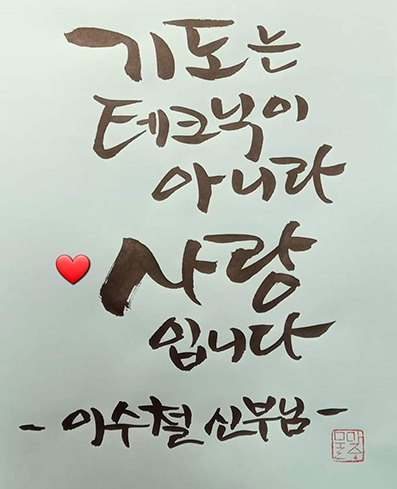 기도는
테크닉이
아니라
사랑
입니다
- 이수철 신부님 -